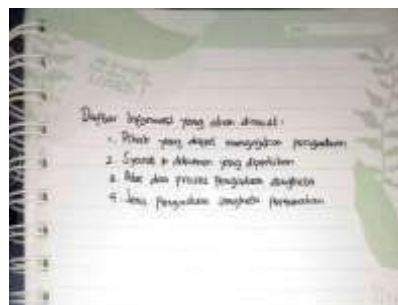 Daftar Informasi yang akan dimuat:
1. Pihak yang dapat mengajukan pengaduan
2. Syarat & dokumen yang diperlukan
3. Alur dan proses Pengaduan sengketa
4. Jenis pengaduan sengketa pertanahan